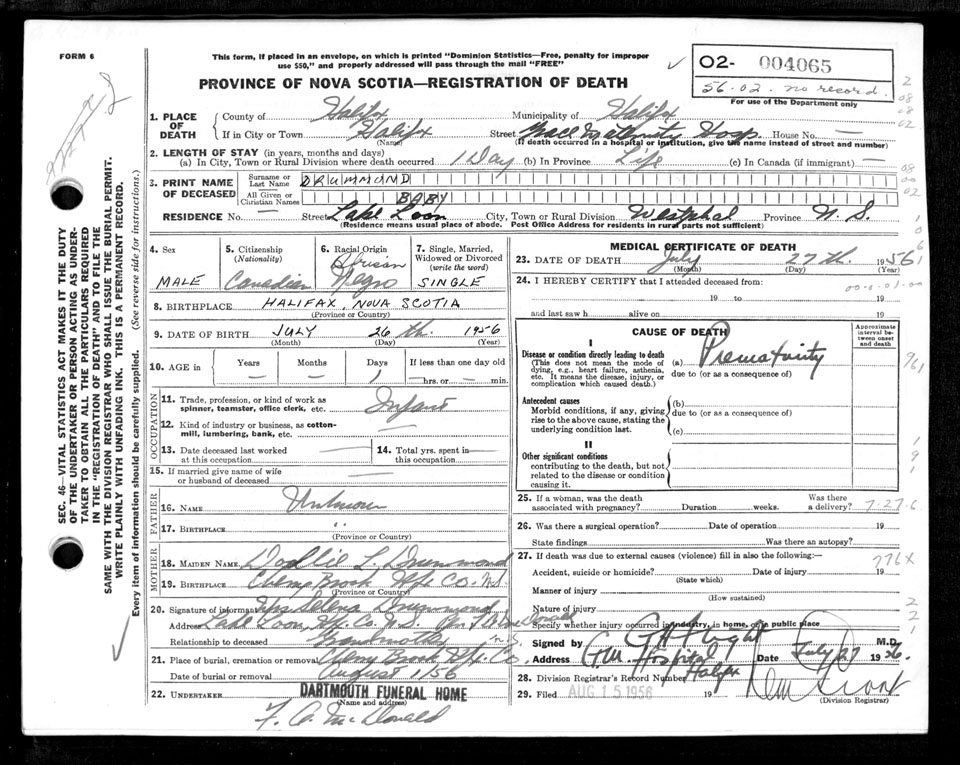 FORM 6
This form, if placed in an envelope, on which is printed "Dominion Statistics—Free, penalty for improper
use $50," and properly addressed will pass through the mail "FREE"
PROVINCE OF NOVA SCOTIA—REGISTRATION OF DEATH
02- 004065
56-02. no record.
For use of the Department only
SEC. 46—VITAL STATISTICS ACT MAKES IT THE DUTY
OF THE UNDERTAKER OR PERSON ACTING AS UNDER-
TAKER TO OBTAIN ALL THE PARTICULARS REQUIRED
IN THE "REGISTRATION OF DEATH" AND TO FILE THE
SAME WITH THE DIVISION REGISTRAR WHO SHALL ISSUE THE BURIAL PERMIT.
WRITE PLAINLY WITH UNFADING INK. THIS IS A PERMANENT RECORD.
Every item of information should be carefully supplied. (See reverse side for instructions.)
1. PLACE OF DEATH
County of Halifx Municipality of Halifx
If in City or Town Halifx Street Grace Maternity Hosp. House No. —
(Name) (If death occurred in a hospital or institution, give the name instead of street and number)
2. LENGTH OF STAY (in years, months and days)
(a) In City, Town or Rural Division where death occurred 1 Day (b) In Province Life (c) In Canada (if immigrant) —
3. PRINT NAME OF DECEASED
Surname or Last Name DRUMMOND
All Given or Christian Names BABY
RESIDENCE No. — Street Lake Loon City, Town or Rural Division Westphal Province N.S.
(Residence means usual place of abode. Post Office Address for residents in rural parts not sufficient)
4. Sex MALE
5. Citizenship (Nationality) Canadian
6. Racial Origin African Negro
7. Single, Married, Widowed or Divorced (write the word) SINGLE
8. BIRTHPLACE HALIFAX, NOVA SCOTIA
(Province or Country)
9. DATE OF BIRTH JULY 26 th. 1956
(Month) (Day) (Year)
10. AGE in Years — Months — Days 1 If less than one day old —hrs. or — min.
OCCUPATION
11. Trade, profession, or kind of work as spinner, teamster, office clerk, etc. Infant
12. Kind of industry or business, as cotton-mill, lumbering, bank, etc. —
13. Date deceased last worked at this occupation —
14. Total yrs. spent in this occupation —
15. If married give name of wife or husband of deceased —
FATHER
16. NAME Unknown
17. BIRTHPLACE "
(Province or Country)
MOTHER
18. MAIDEN NAME L. Drummond
19. BIRTHPLACE Cherry Brook Hfx Co. N.S.
(Province or Country)
20. Signature of informant Mrs Selena Drummond
Address Lake Loon, Hfx. Co. N.S.
Relationship to deceased Grandmother
21. Place of burial, cremation or removal Cherry Brook Hfx Co.
Date of burial or removal August 1/56
22. UNDERTAKER DARTMOUTH FUNERAL HOME
(Name and address)
F. A. McDonald
MEDICAL CERTIFICATE OF DEATH
23. DATE OF DEATH July 27 th. 1956
(Month) (Day) (Year)
24. I HEREBY CERTIFY that I attended deceased from:
19 to 19
and last saw h alive on 19
CAUSE OF DEATH
Approximate interval between onset and death
I
Disease or condition directly leading to death
(This does not mean the mode of dying, e.g., heart failure, asthenia, etc. It means the disease, injury, or complication which caused death.)
(a) Prematurity
due to (or as a consequence of)
Antecedent causes
Morbid conditions, if any, giving rise to the above cause, stating the underlying condition last.
(b)
due to (or as a consequence of)
(c)
II
Other significant conditions
contributing to the death, but not related to the disease or condition causing it.
25. If a woman, was the death associated with pregnancy? Duration weeks. Was there a delivery?
7-27-6
26. Was there a surgical operation? Date of operation 19
State findings Was there an autopsy?
27. If death was due to external causes (violence) fill in also the following:—
776X
Accident, suicide or homicide? Date of injury 19
(State which)
Manner of injury
(How sustained)
Nature of injury
Specify whether injury occurred in industry, in home, or in public place
Signed by M.D.
Address G.M. Hospital Halifax Date July 27 1956.
28. Division Registrar's Record Number
29. Filed AUG 15 1956 19
(Division Registrar)